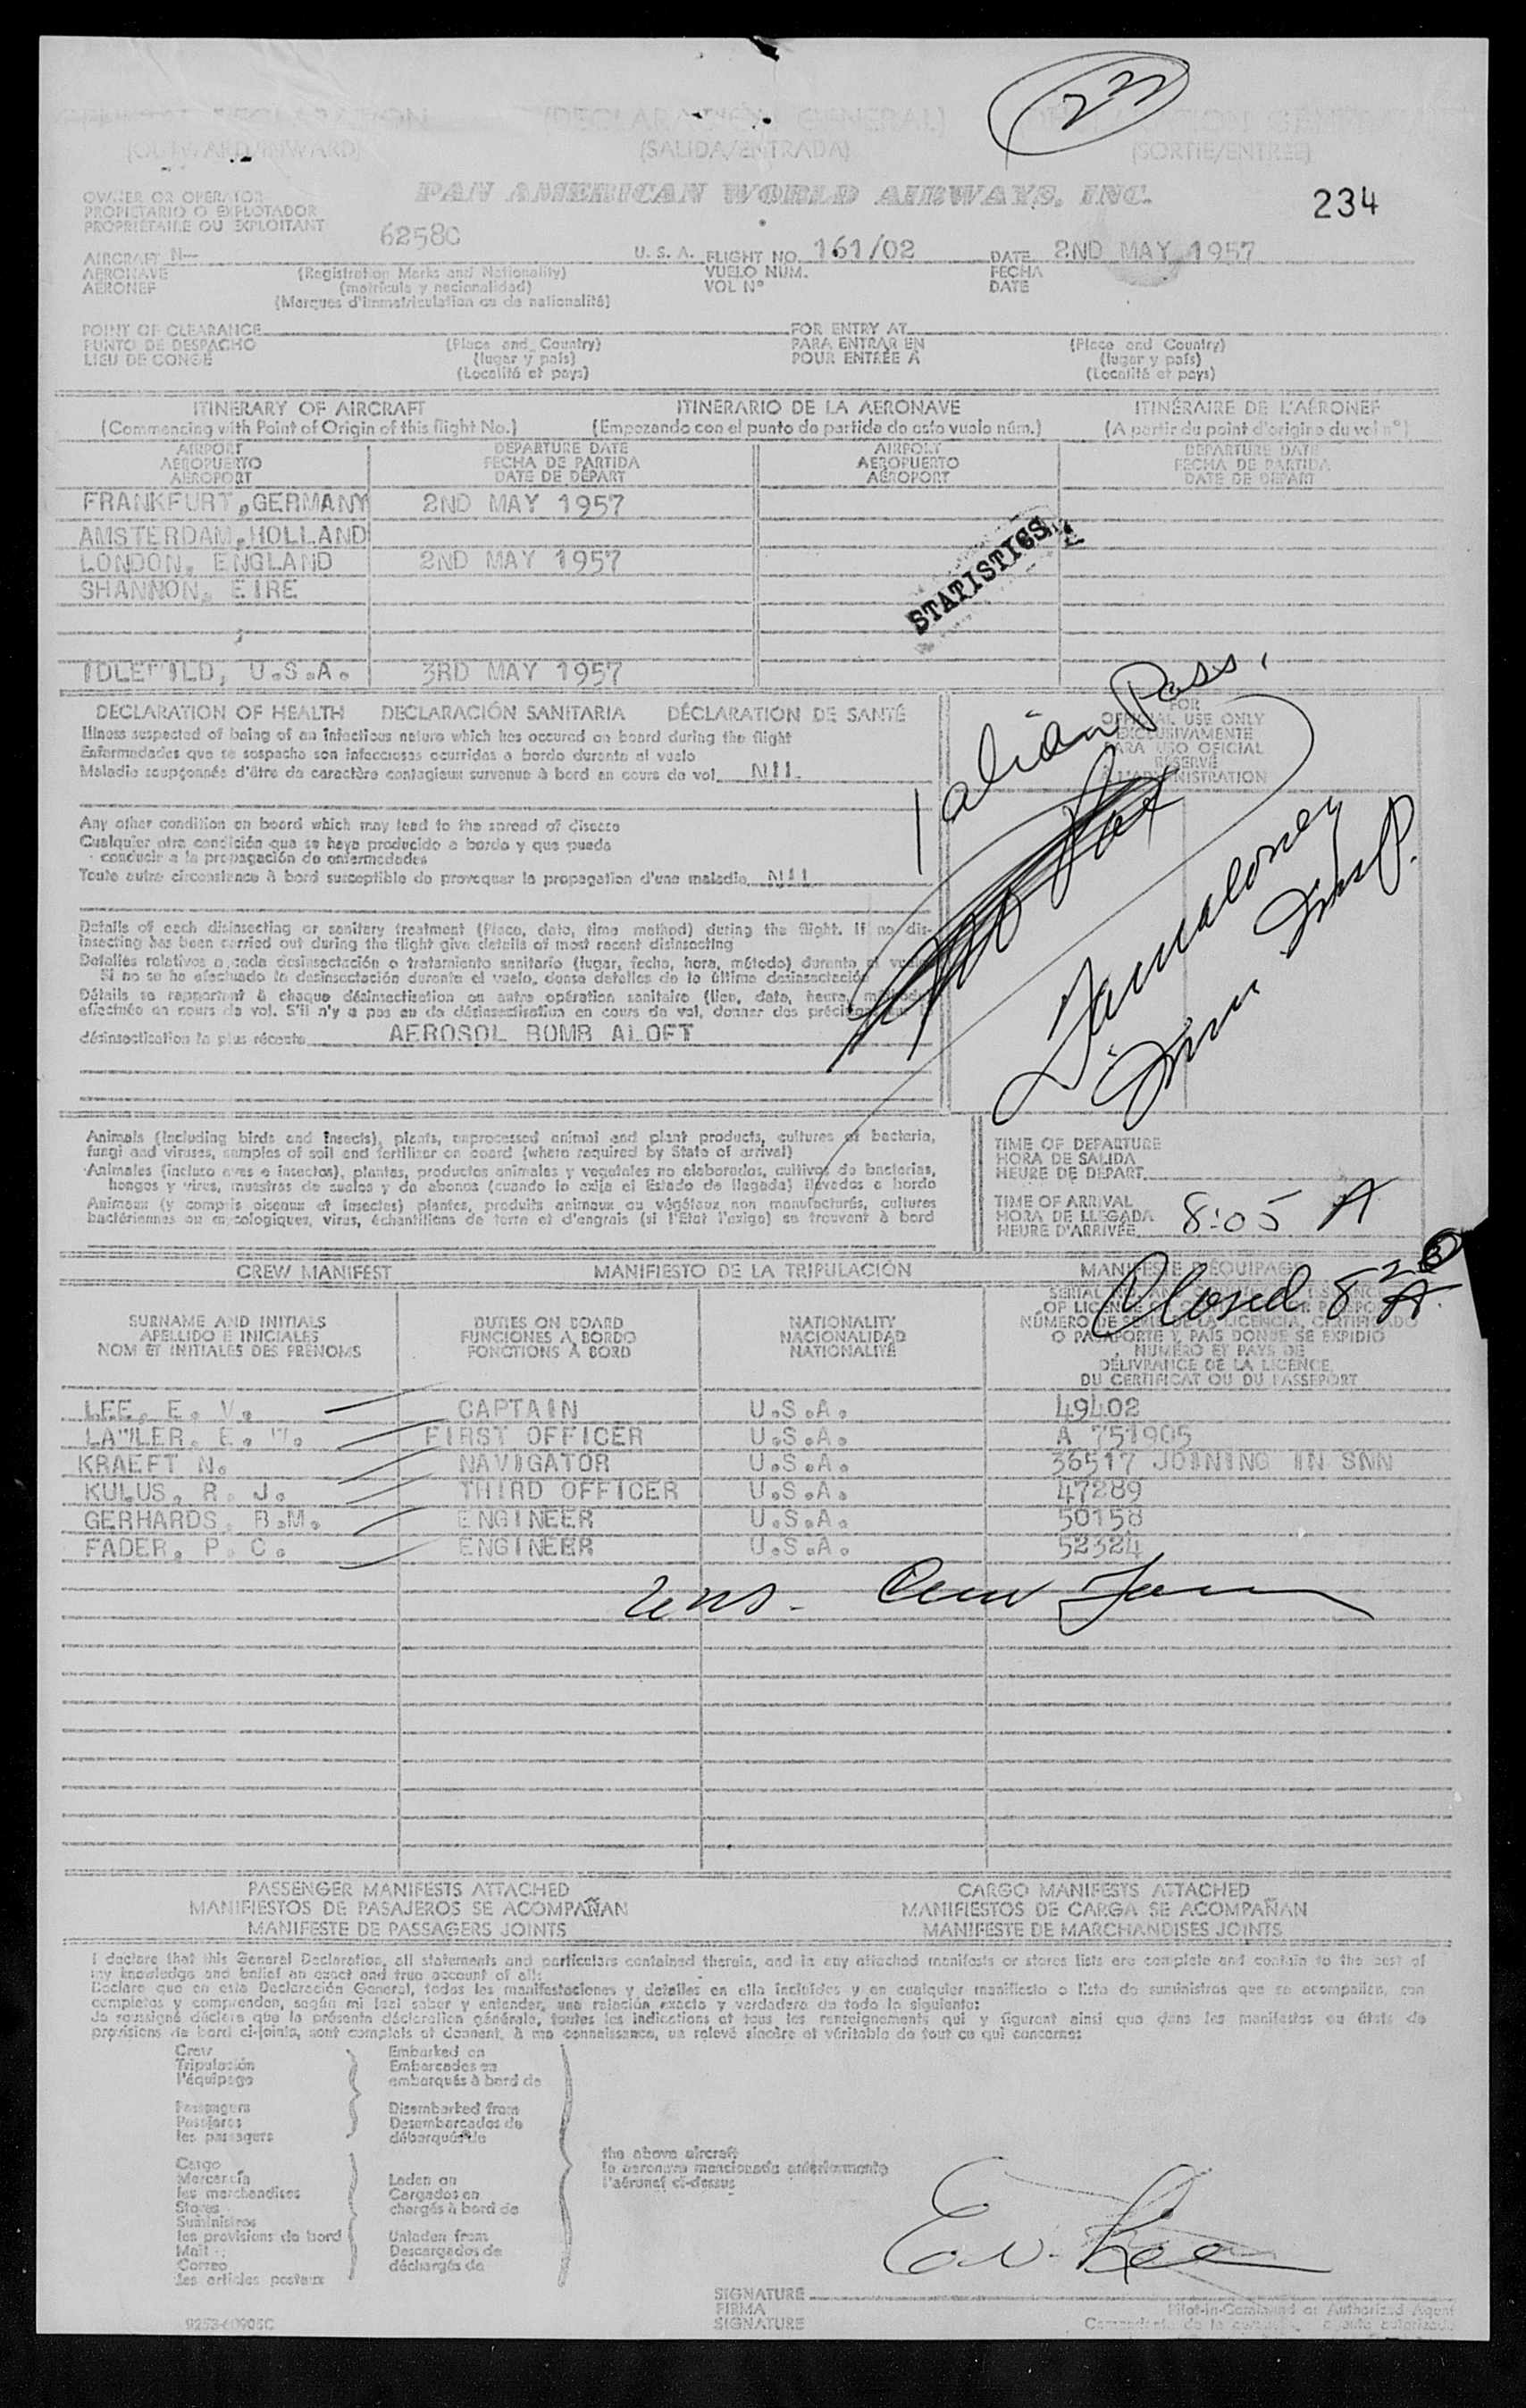 GENERAL DECLARATION (DECLARACIÓN GENERAL)
(OUTWARD/INWARD) (SALIDA/ENTRADA) (SORTIE/ENTREE)
PAN AMERICAN WORLD AIRWAYS, INC.
234
OWNER OR OPERATOR
PROPIETARIO O EXPLOTADOR
PROPRIÉTAIRE OU EXPLOITANT
6258C
AIRCRAFT N— U. S. A. FLIGHT NO. 161/02 DATE 2ND MAY 1957
AERONAVE (Registration Marks and Nationality) VUELO NÚM. FECHA
AÉRONEF (matrícula y nacionalidad) VOL Nº DATE
(Marques d'immatriculation ou de nationalité)
POINT OF CLEARANCE FOR ENTRY AT
PUNTO DE DESPACHO (Place and Country) PARA ENTRAR EN (Place and Country)
LIEU DE CONGÉ (lugar y país) POUR ENTRÉE À (lugar y país)
(Localité et pays) (Localité et pays)
ITINERARY OF AIRCRAFT ITINERARIO DE LA AERONAVE ITINÉRAIRE DE L'AÉRONEF
(Commencing with Point of Origin of this flight No.) (Empezando con el punto de partida de este vuelo núm.) (A partir du point d'origine du vol nº)
AIRPORT DEPARTURE DATE AIRPORT DEPARTURE DATE
AEROPUERTO FECHA DE PARTIDA AEROPUERTO FECHA DE PARTIDA
AÉROPORT DATE DE DÉPART AÉROPORT DATE DE DÉPART
FRANKFURT, GERMANY 2ND MAY 1957
AMSTERDAM, HOLLAND
LONDON, ENGLAND 2ND MAY 1957
SHANNON, EIRE
STATISTICS
IDLEWILD, U.S.A. 3RD MAY 1957
DECLARATION OF HEALTH DECLARACIÓN SANITARIA DÉCLARATION DE SANTÉ
FOR
OFFICIAL USE ONLY
EXCLUSIVAMENTE
PARA USO OFICIAL
RÉSERVÉ
À L'ADMINISTRATION
Illness suspected of being of an infectious nature which has occured on board during the flight
Enfermedades que se sospecha son infecciosas ocurridas a bordo durante el vuelo
Maladie soupçonnés d'être de caractère contagieux survenue à bord en cours de vol NIL
1 alien Pass.
Any other condition on board which may lead to the spread of disease
Cualquier otra condición que se haya producido a bordo y que pueda
conducir a la propagación de enfermedades
Toute autre circonstance à bord susceptible de provoquer la propagation d'une maladie NIL
Details of each disinsecting or sanitary treatment (Place, date, time method) during the flight. If no dis-
insecting has been carried out during the flight give details of most recent disinsecting
Detalles relativos a cada desinsectación o tratamiento sanitario (lugar, fecha, hora, método) durante el vuelo
Si no se ha efectuado la desinsectación durante el vuelo, dense detalles de la última desinsectación
Détails se rapportant à chaque désinsectisation ou autre opération sanitaire (lieu, date, heure, méthode)
effectuée en cours de vol. S'il n'y a pas eu de désinsectisation en cours de vol, donner des précisions sur la
désinsectisation la plus récente AEROSOL BOMB ALOFT
Animals (including birds and insects), plants, unprocessed animal and plant products, cultures of bacteria,
fungi and viruses, samples of soil and fertilizer on board (where required by State of arrival)
Animales (incluso aves e insectos), plantas, productos animales y vegetales no elaborados, cultivos de bacterias,
hongos y virus, muestras de suelos y de abonos (cuando lo exija el Estado de llegada) llevados a bordo
Animaux (y compris oiseaux et insectes) plantes, produits animaux ou végétaux non manufacturés, cultures
bactériennes ou mycologiques, virus, échantillons de terre et d'engrais (si l'État l'exige) se trouvant à bord
TIME OF DEPARTURE
HORA DE SALIDA
HEURE DE DÉPART
TIME OF ARRIVAL
HORA DE LLEGADA 8:05 A
HEURE D'ARRIVÉE
CREW MANIFEST MANIFIESTO DE LA TRIPULACIÓN MANIFESTE D'ÉQUIPAGE
Closed 8 20 A
SURNAME AND INITIALS DUTIES ON BOARD NATIONALITY
APELLIDO E INICIALES FUNCIONES A BORDO NACIONALIDAD
NOM ET INITIALES DES PRÉNOMS FONCTIONS À BORD NATIONALITÉ
NÚMERO DE SERIE DE LA LICENCIA, CERTIFICADO
O PASAPORTE Y PAÍS DONDE SE EXPIDIÓ
NUMÉRO ET PAYS DE
DÉLIVRANCE DE LA LICENCE,
DU CERTIFICAT OU DU PASSEPORT
LEE, E. V. CAPTAIN U.S.A. 49402
LAWLER, E. W. FIRST OFFICER U.S.A. A 751905
KRAEFT N. NAVIGATOR U.S.A. 36517 JOINING IN SNN
KULUS, R. J. THIRD OFFICER U.S.A. 47289
GERHARDS, B.M. ENGINEER U.S.A. 50158
FADER, P. C. ENGINEER U.S.A. 52324
PASSENGER MANIFESTS ATTACHED CARGO MANIFESTS ATTACHED
MANIFIESTOS DE PASAJEROS SE ACOMPAÑAN MANIFIESTOS DE CARGA SE ACOMPAÑAN
MANIFESTE DE PASSAGERS JOINTS MANIFESTE DE MARCHANDISES JOINTS
I declare that this General Declaration, all statements and particulars contained therein, and in any attached manifests or stores lists are complete and contain to the best of
my knowledge and belief an exact and true account of all:
Declaro que en esta Declaración General, todas las manifestaciones y detalles en ella incluidos y en cualquier manifiesto o lista de suministros que se acompañen, son
completos y comprenden, según mi leal saber y entender, una relación exacta y verdadera de todo lo siguiente:
Je soussigné déclare que la présente déclaration générale, toutes les indications et tous les renseignements qui y figurent ainsi que dans les manifestes ou états de
provisions de bord ci-joints, sont complets et donnent, à ma connaissance, un relevé sincère et véritable de tout ce qui concerne:
Crew Embarked on
Tripulación Embarcados en
l'équipage embarqués à bord de
Passengers Disembarked from
Pasajeros Desembarcados de
les passagers débarqués de
the above aircraft
la aeronave mencionada anteriormente
l'aéronef ci-dessus
Cargo
Mercancía Laden on
les marchandises Cargados en
Stores chargés à bord de
Suministros
les provisions de bord Unladen from
Mail Descargados de
Correo déchargés de
les articles postaux
E.V. Lee
SIGNATURE
FIRMA Pilot-in-Command or Authorized Agent
SIGNATURE